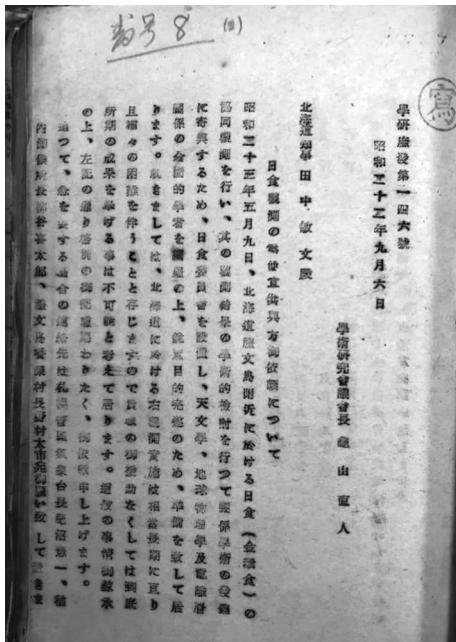 番号 8 (2)
寫
學研施發第一四六號
昭和二十二年九月六日
學術研究會議會長 龜山直人
北海道知事 田中敏文殿
日食觀測の 便宜供與方御依頼について
昭和二十三年五月九日、北海道礼文島附近に於ける日食(金環食)の
協同觀測を行い、其の觀測結果の學術的檢討を行つて關係學術の發達
に寄與するため、日食委員會を設置し、天文學、地球物理學及電離層
關係の 學者を の上、 目的完遂のため、準備を致して居
ります。 きましては、北海道に於ける右觀測實施は相當長期に亘り
且種々の困難を伴うことと存じますので貴職の御援助なくしては到底
所期の成果を擧げる事は不可能と考えて居ります。 の事情御諒承
の上、左記の通り格別の御配慮賜わりたく、御依頼申し上げます。
追つて、 を要する場合の連絡先は 氣象台長 一、稚
內 所長 太郎、 文島香深村長野村太市宛御願い致して